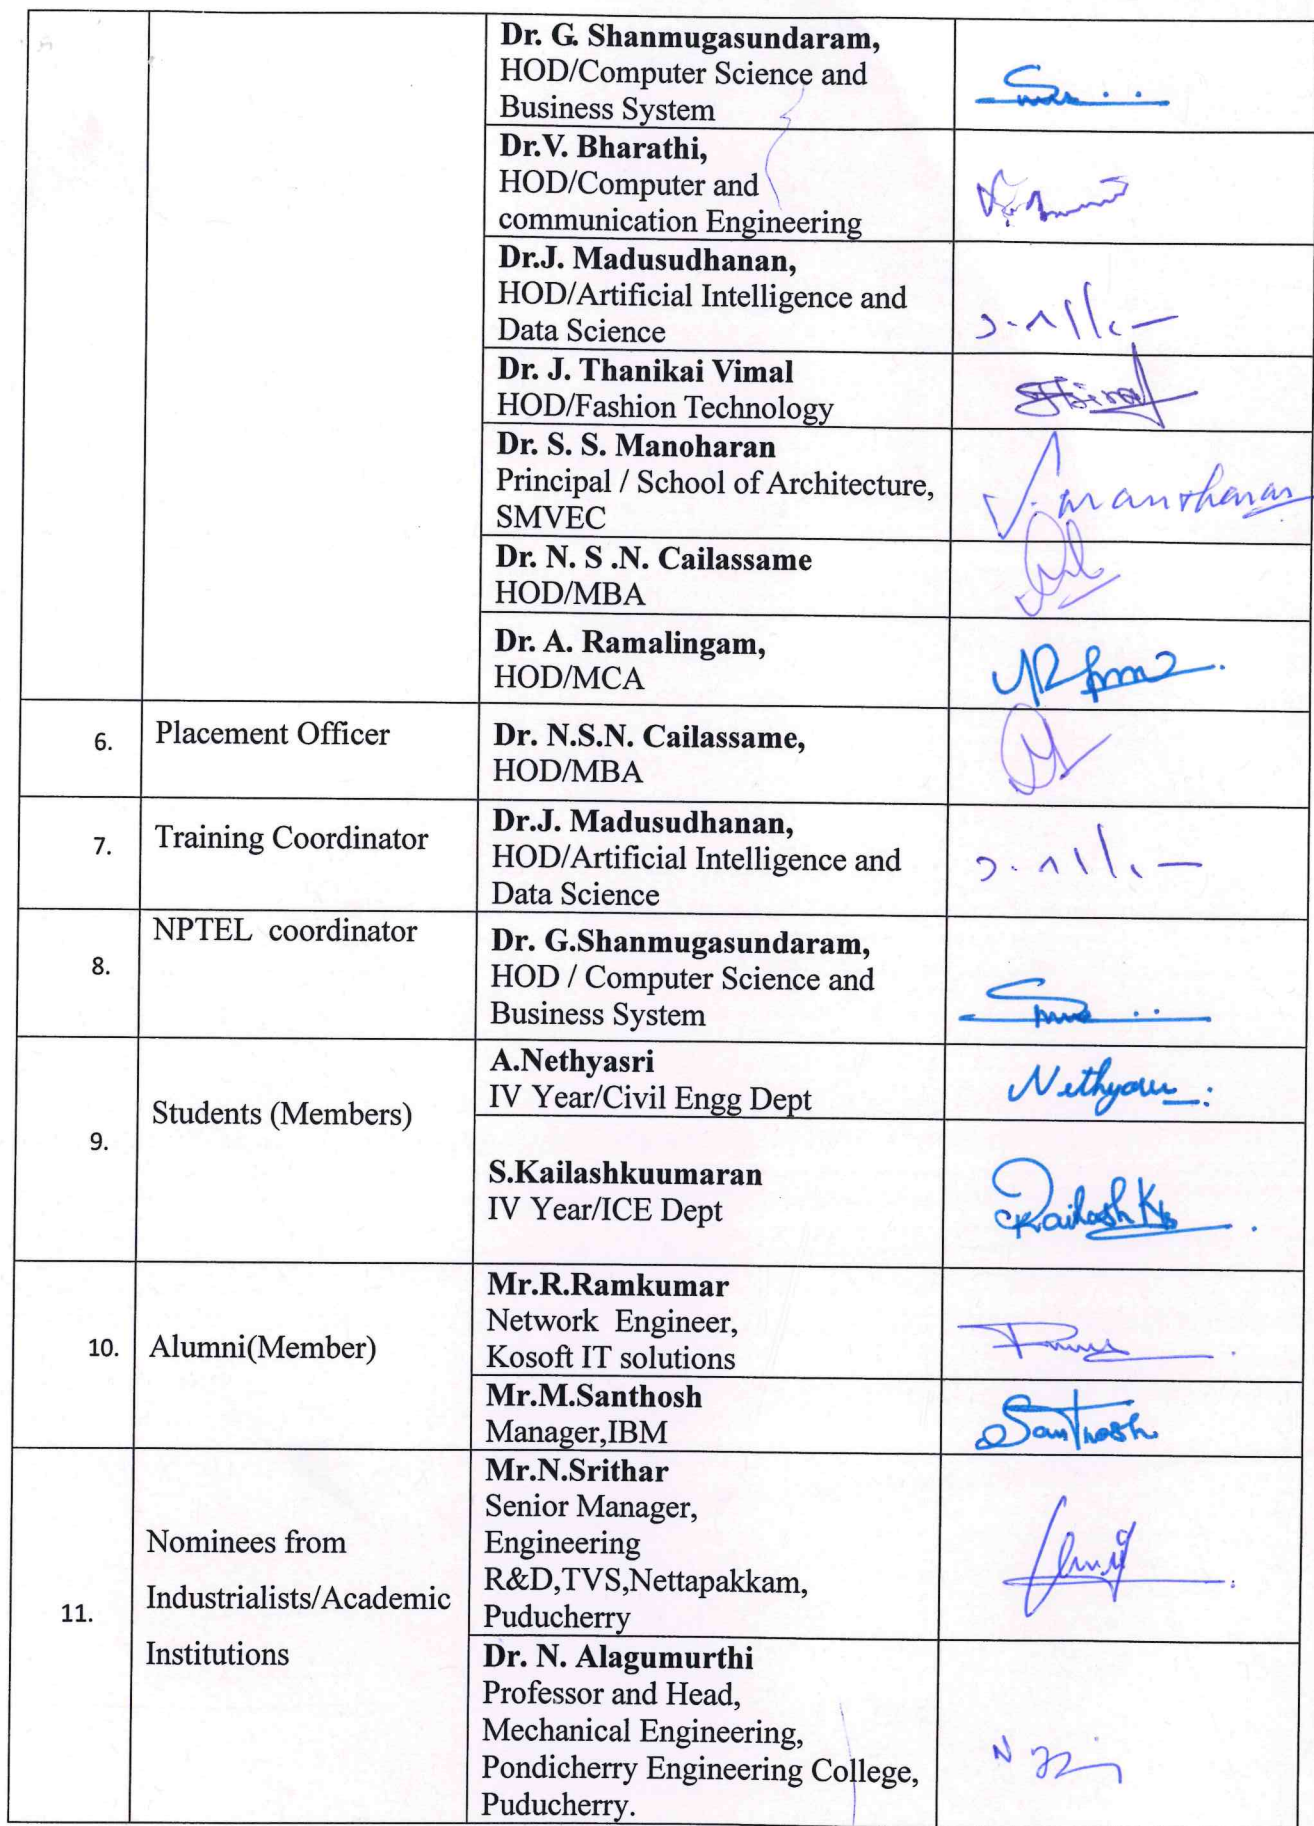 Dr. G. Shanmugasundaram,
HOD/Computer Science and
Business System
Dr.V. Bharathi,
HOD/Computer and
communication Engineering
Dr.J. Madusudhanan,
HOD/Artificial Intelligence and
Data Science
Dr. J. Thanikai Vimal
HOD/Fashion Technology
Dr. S. S. Manoharan
Principal / School of Architecture,
SMVEC
Dr. N. S .N. Cailassame
HOD/MBA
Dr. A. Ramalingam,
HOD/MCA
6.
Placement Officer
Dr. N.S.N. Cailassame,
HOD/MBA
7.
Training Coordinator
Dr.J. Madusudhanan,
HOD/Artificial Intelligence and
Data Science
8.
NPTEL coordinator
Dr. G.Shanmugasundaram,
HOD / Computer Science and
Business System
9.
Students (Members)
A.Nethyasri
IV Year/Civil Engg Dept
S.Kailashkuumaran
IV Year/ICE Dept
10.
Alumni(Member)
Mr.R.Ramkumar
Network Engineer,
Kosoft IT solutions
Mr.M.Santhosh
Manager,IBM
Santhosh
11.
Nominees from
Industrialists/Academic
Institutions
Mr.N.Srithar
Senior Manager,
Engineering
R&D,TVS,Nettapakkam,
Puducherry
Dr. N. Alagumurthi
Professor and Head,
Mechanical Engineering,
Pondicherry Engineering College,
Puducherry.